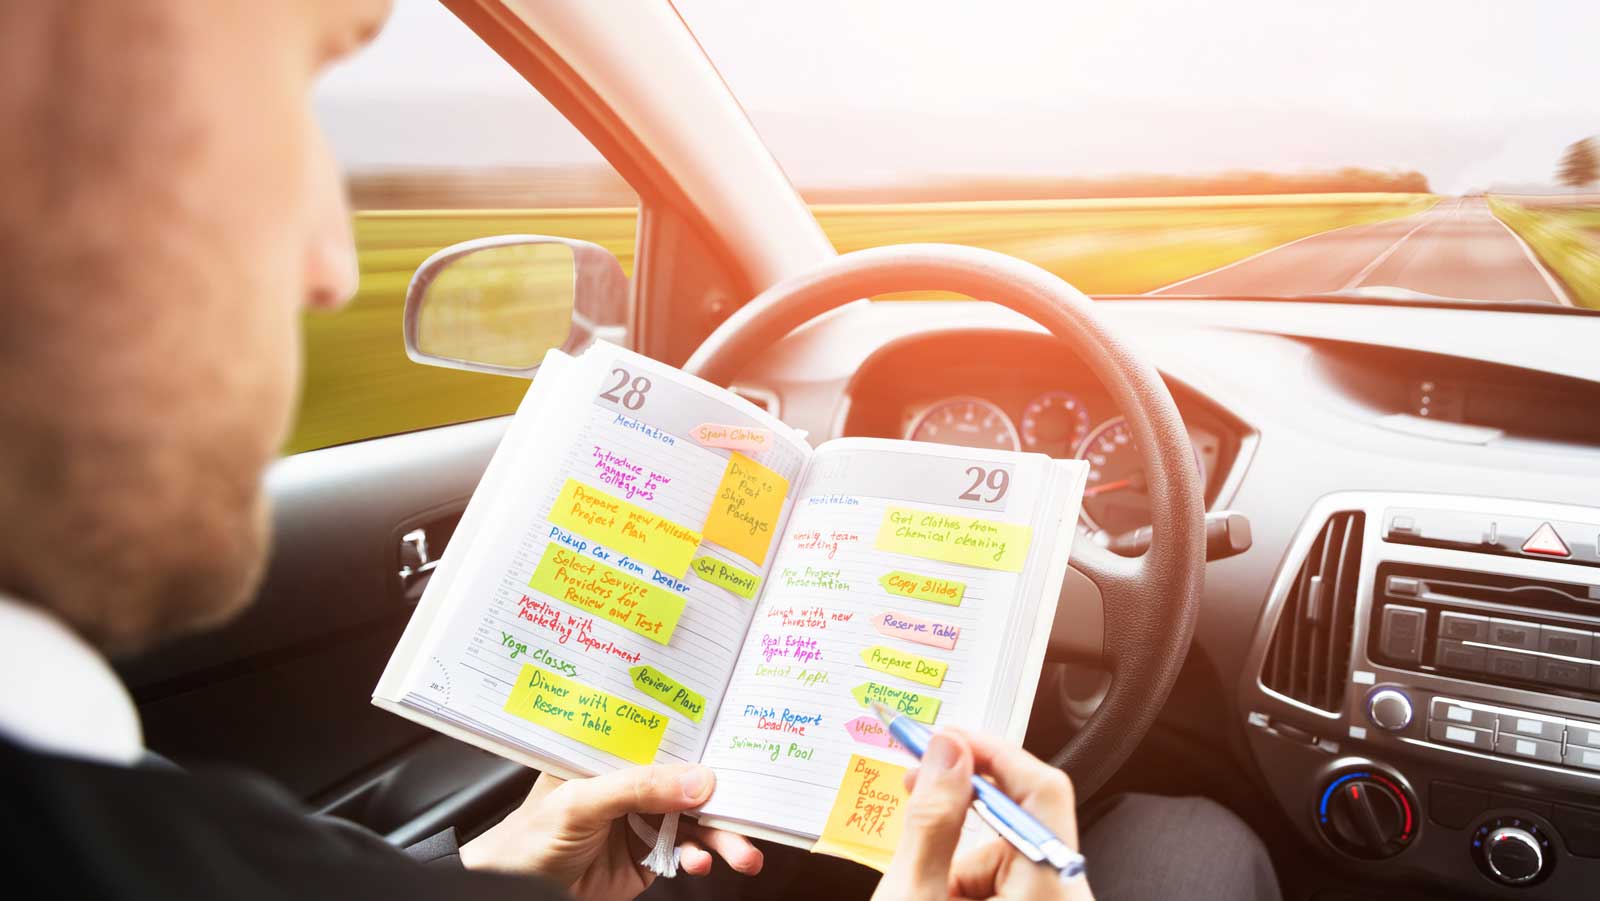 28
Meditation
Sport Clothes
Introduce new
Manager to
Colleagues
Drive to
Post
Ship
Packages
Prepare new Milestone
Project Plan
Pickup Car from Dealer
Set Priority
Select Service
Providers for
Review and Test
Meeting with
Marketing Department
Yoga Classes
Review Plans
Dinner with Clients
Reserve Table
29
Meditation
Get Clothes from
Chemical cleaning
Weekly team
meeting
New Project
Presentation
Copy Slides
Lunch with new
Investors
Reserve Table
Real Estate
Agent Appt.
Prepare Docs
Dentist Appt.
Followup
with Dev
Finish Report
Deadline
Swimming Pool
Buy
Bacon
Eggs
Milk